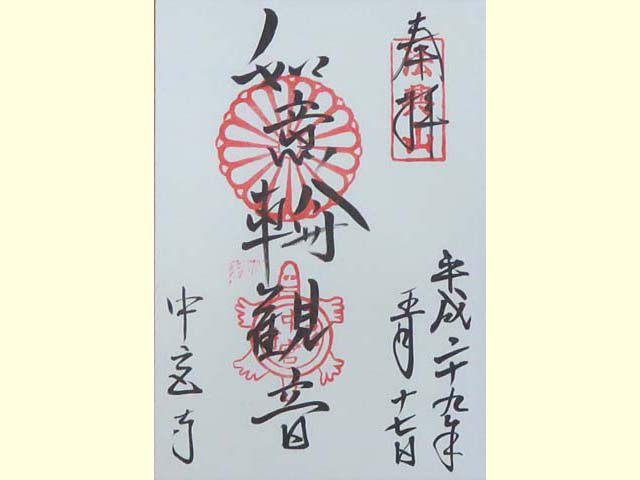 奉拝
平成二十九年
五月十七日
如意輪観音
中宮寺